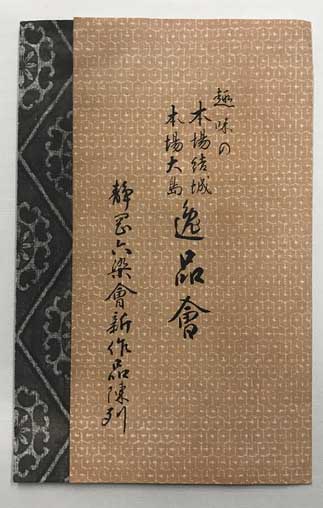 趣味の
本場結城
本場大島
逸品會
静岡六染會新作品陳列